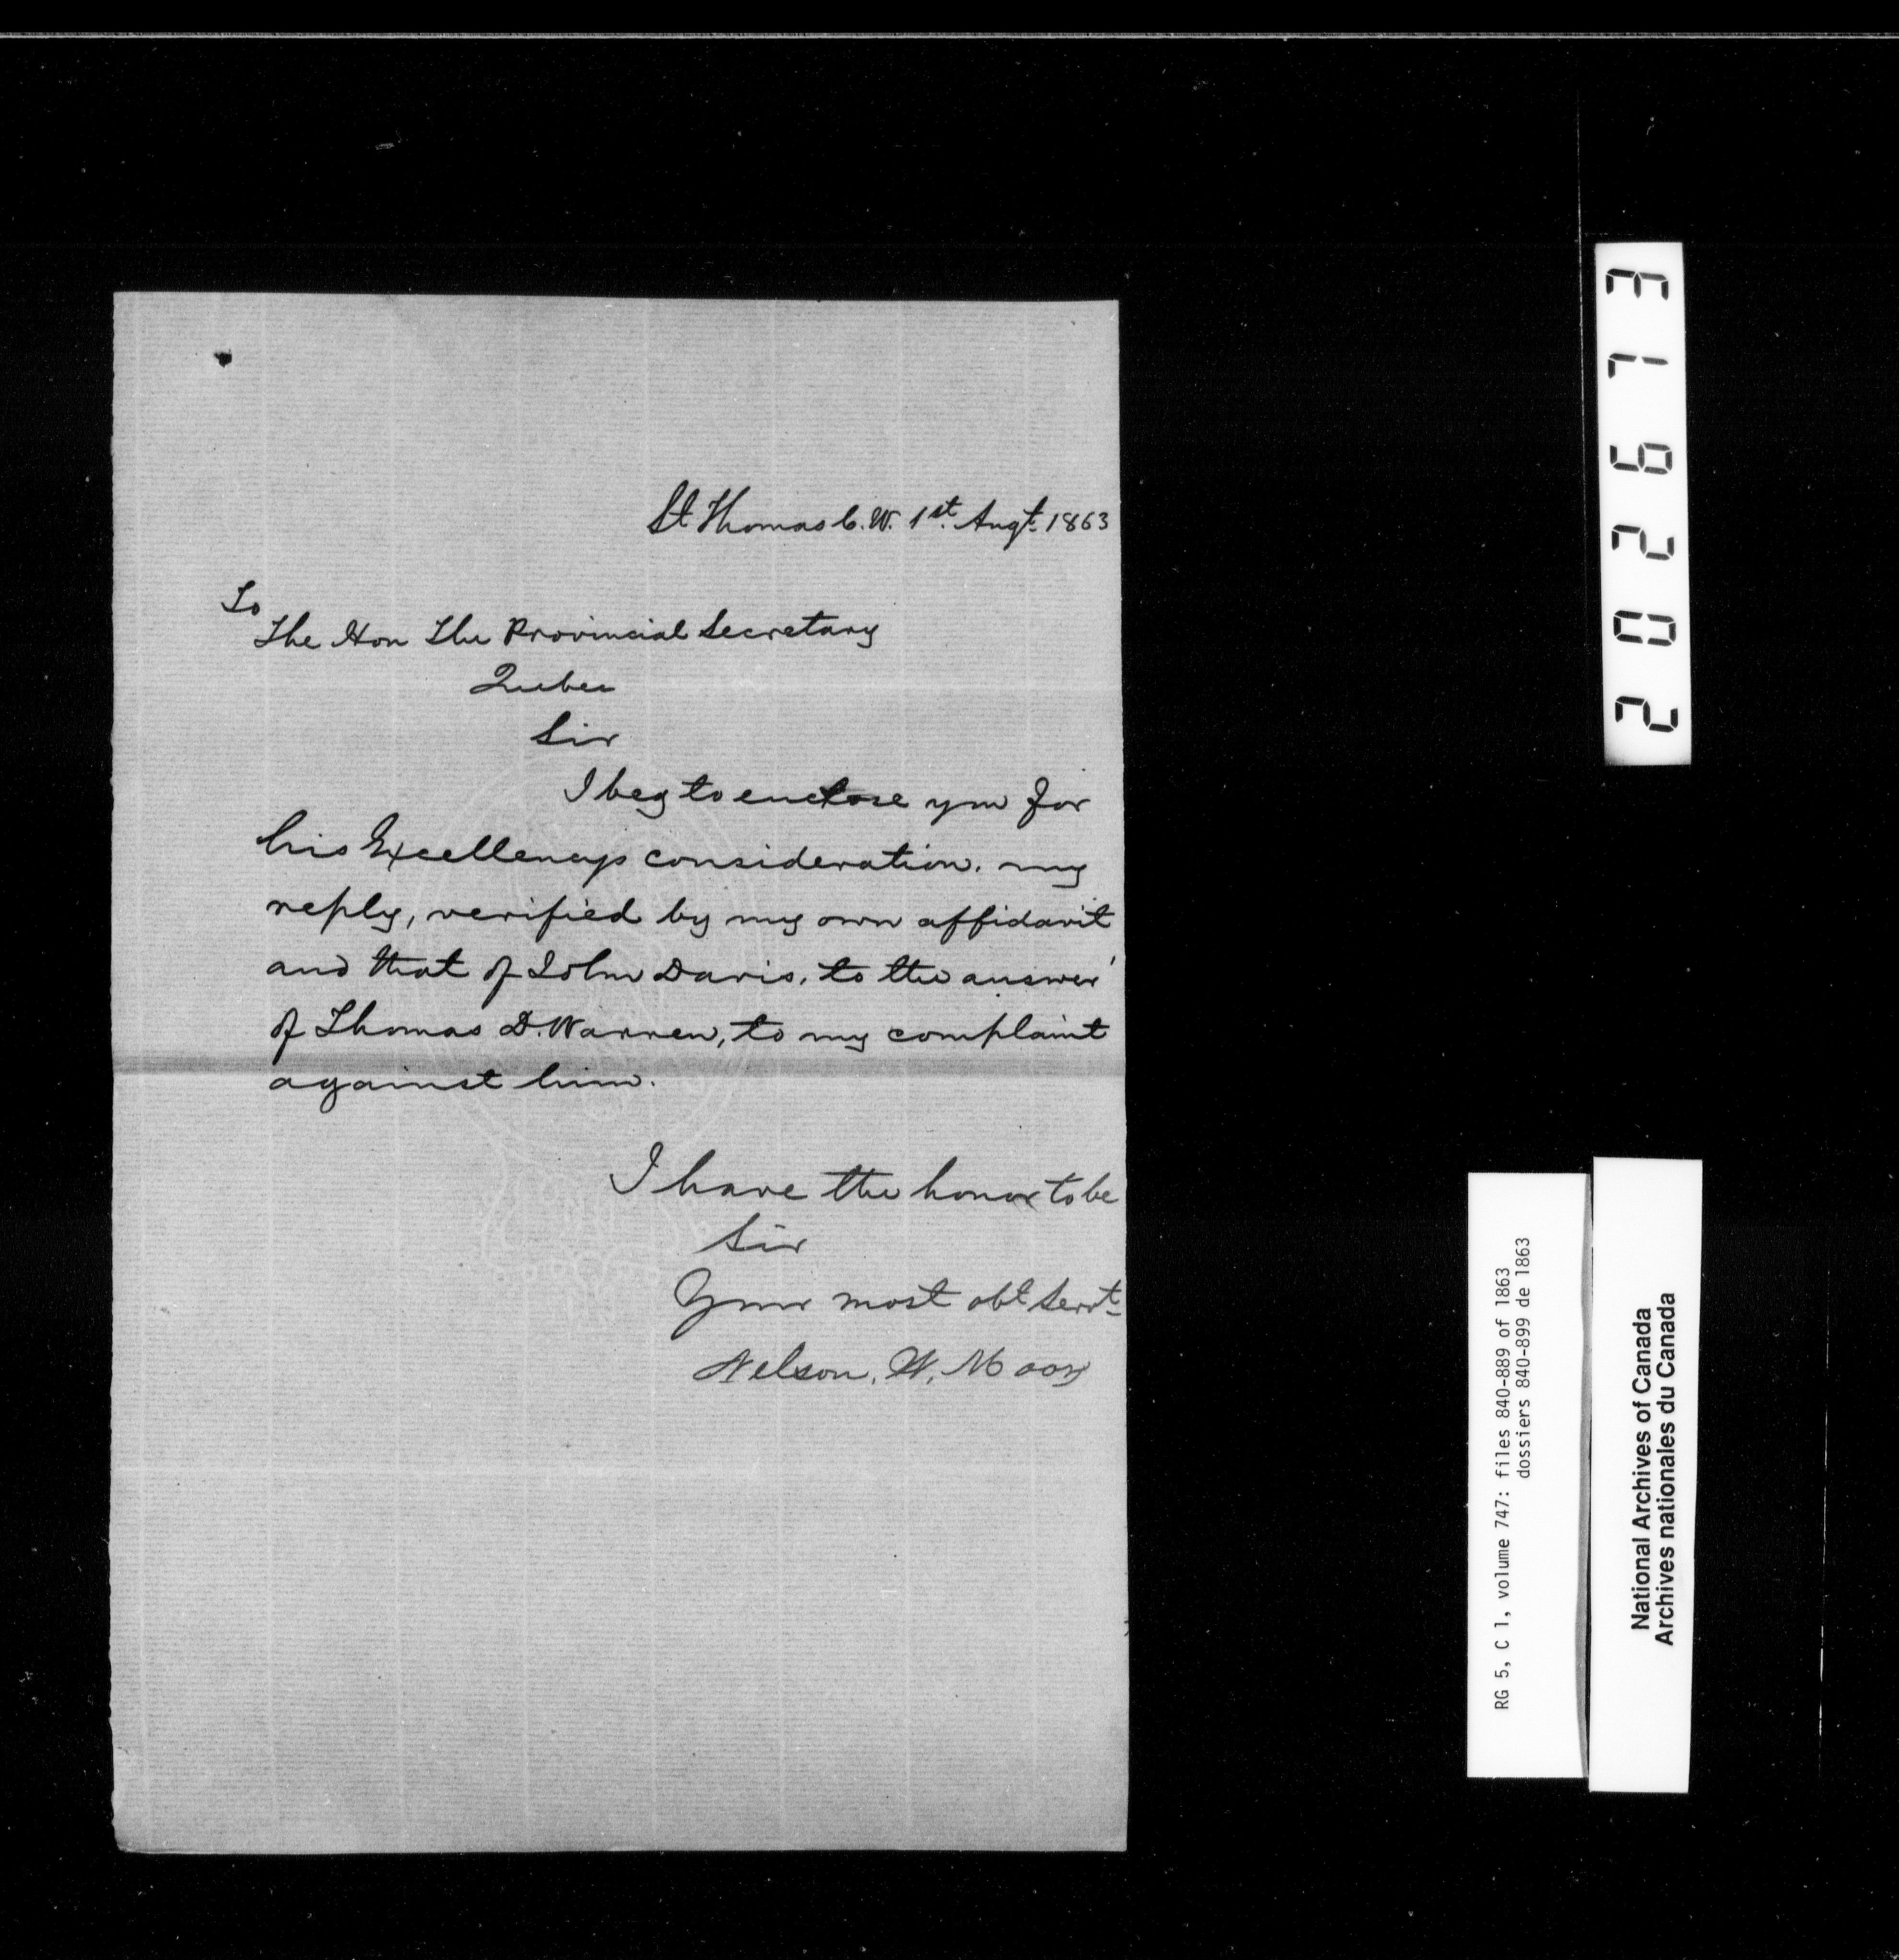 St Thomas C.W. 1st. Augt. 1863
To
The Hon The Provincial Secretary
Quebec
Sir
I beg to enclose you for
his Excellencys consideration. my
reply, verified by my own affidavit
and that of John Davis, to the answer
of Thomas D. Warren, to my complaint
against him.
I have the honor to be
Sir
Your most obt Servt
Nelson. W. Moore
202673
RG 5, C 1, volume 747: files 840-889 of 1863
dossiers 840-899 de 1863
National Archives of Canada
Archives nationales du Canada